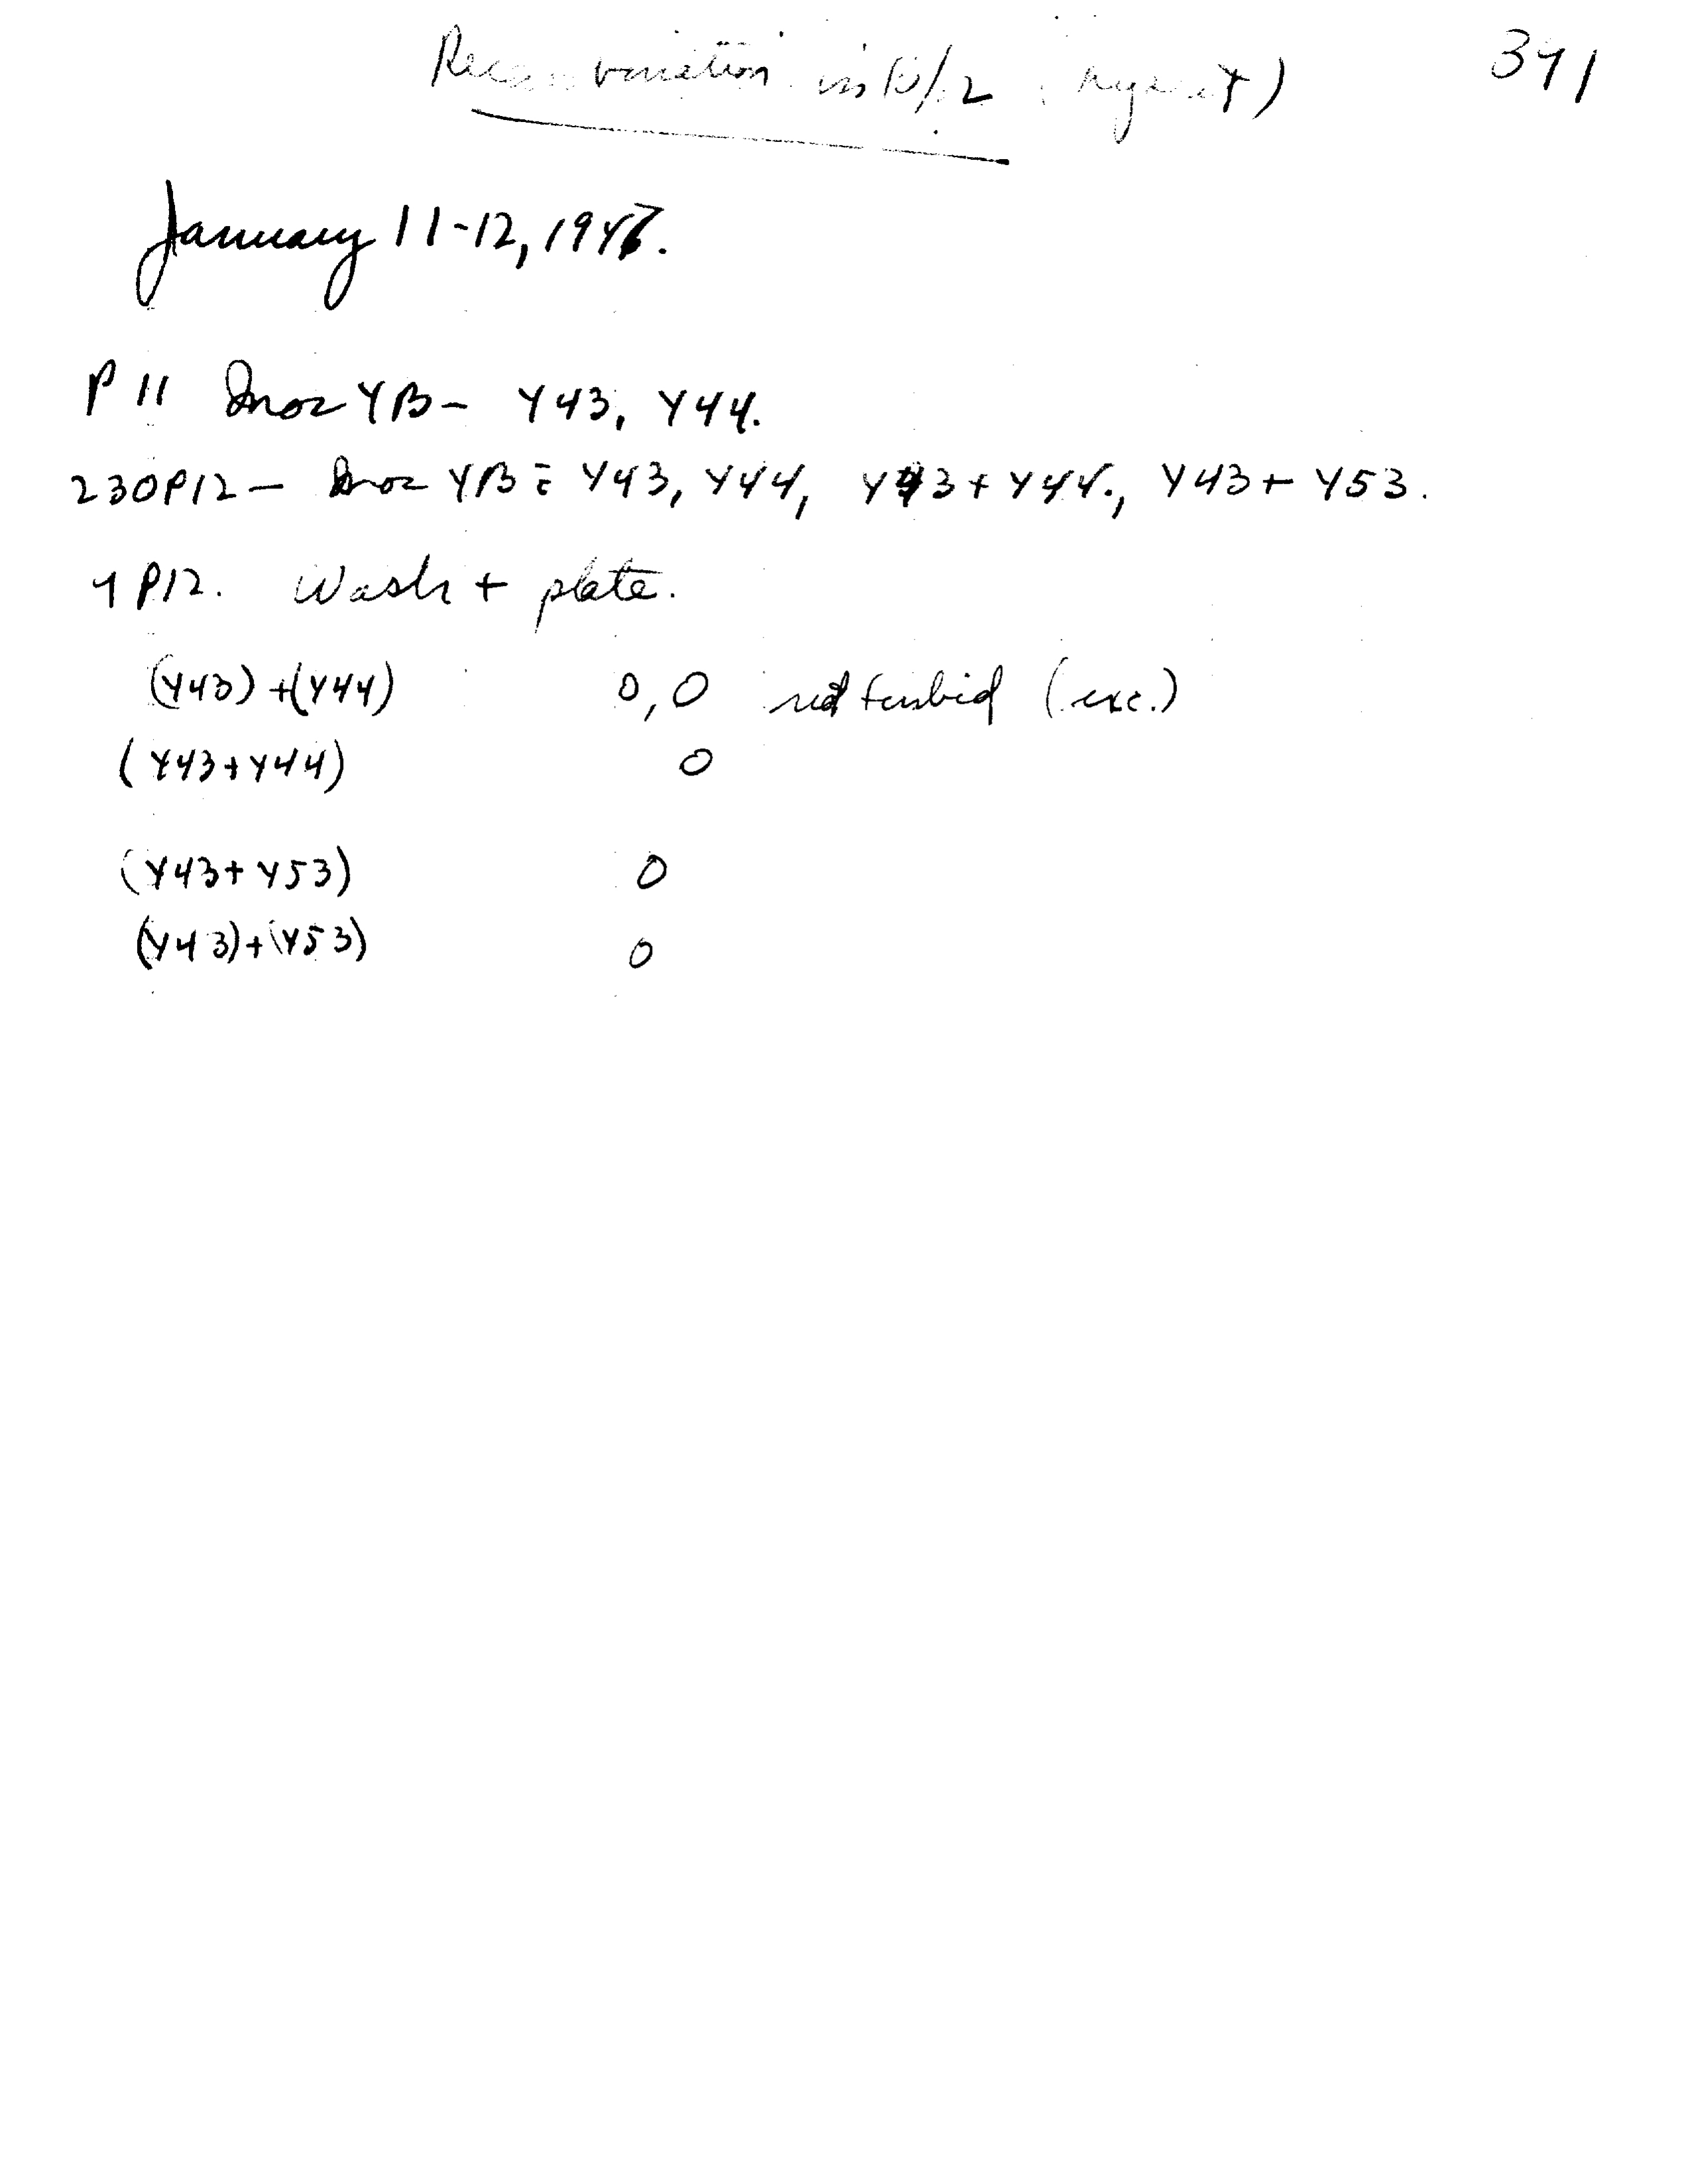 Recombination in B/12 (Repeat) 391
January 11-12, 1947.
P 11 Inoc YB - Y43, Y44.
230P12 - Inoc YB c̄ Y43, Y44, Y43 + Y44., Y43 + Y53.
9 P12. Wash + plate.
(Y43) + (Y44) 0, 0 not turbid (exc.)
(Y43 + Y44) 0
(Y43 + Y53) 0
(Y43) + (Y53) 0